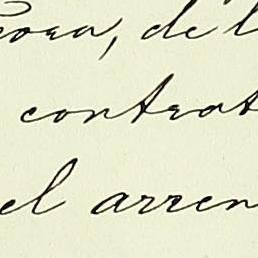 de l
contrat
el arren